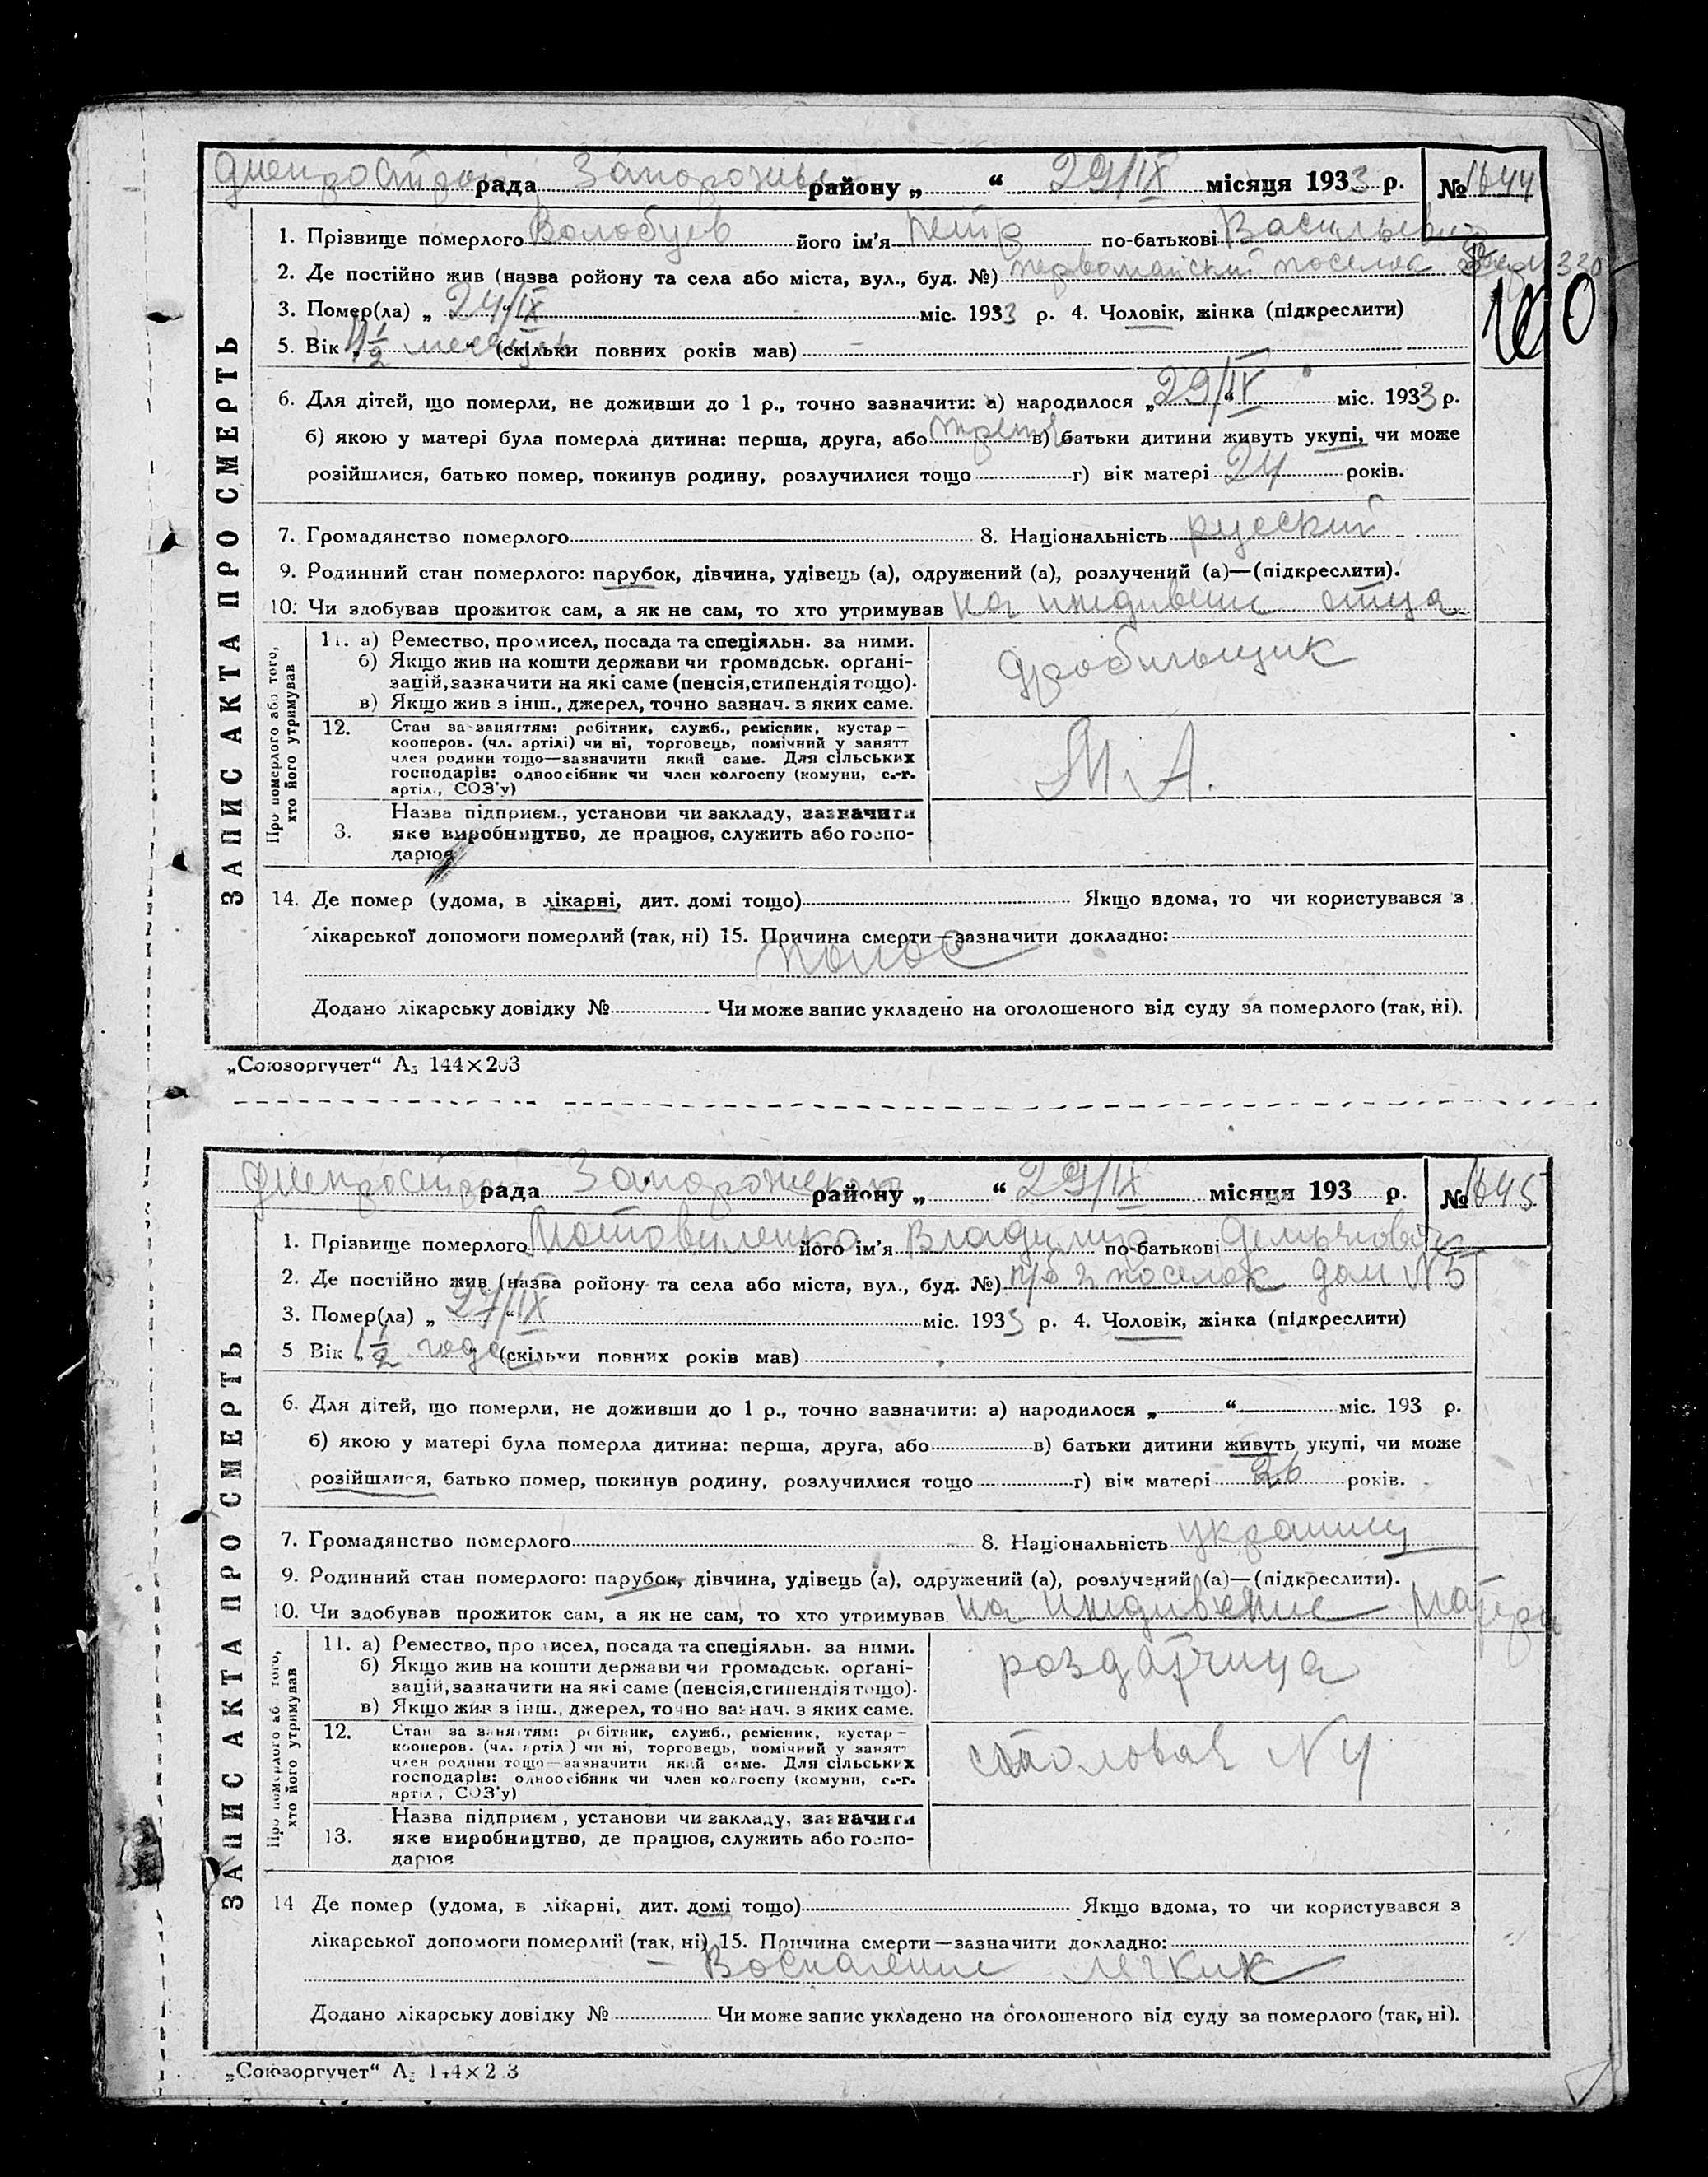 Днепрострой рада Запорожье району „ “ 29/IX місяця 1933 р. № 1644
1. Прізвище померлого Волобуев його ім'я Петр по-батькові Васильевич
2. Де постійно жив (назва ройону та села або міста, вул., буд. №) первомайский поселок
3. Помер(ла) „ 24/IX “ міс. 1933 р. 4. Чоловік, жінка (підкреслити)
100
5. Вік „ “ (скільки повних років мав) —
6. Для дітей, що померли, не доживши до 1 р., точно зазначити: а) народилося „ 29/ “ міс. 1933 р.
б) якою у матері була померла дитина: перша, друга, або в) батьки дитини живуть укупі, чи може
розійшлися, батько помер, покинув родину, розлучилися тощо г) вік матері 24 років.
7. Громадянство померлого 8. Національність русский
9. Родинний стан померлого: парубок, дівчина, удівець (а), одружений (а), розлучений (а)—(підкреслити).
10. Чи здобував прожиток сам, а як не сам, то хто утримував на иждивени отца
11. а) Ремество, промисел, посада та спеціяльн. за ними.
б) Якщо жив на кошти держави чи громадськ. орґані-
зацій, зазначити на які саме (пенсія, стипендія тощо).
в) Якщо жив з інш., джерел, точно зазнач. з яких саме.
дробильщик
12. Стан за заняттям: робітник, служб., ремісник, кустар—
кооперов. (чл. артілі) чи ні, торговець, помічний у занятт
член родини тощо—зазначити який саме. Для сільських
господарів: одноосібник чи член колгоспу (комуни, с.-г.
артіл., СОЗ'у)
М. А.
3. Назва підприєм., установи чи закладу, зазначити
яке виробництво, де працює, служить або госпо-
дарює
Про померлого або того,
хто його утримував
14. Де помер (удома, в лікарні, дит. домі тощо) Якщо вдома, то чи користувався з
лікарської допомоги померлий (так, ні) 15. Причина смерти—зазначити докладно:
понос
Додано лікарську довідку № Чи може запис укладено на оголошеного від суду за померлого (так, ні).
ЗАПИС АКТА ПРО СМЕРТЬ
„Союзоргучет“ А5 144×203
Днепрострой рада району „ “ 29/IX місяця 193 р. № 1645
1. Прізвище померлого Мотовиленко його ім'я Владимир по-батькові Демьянович
2. Де постійно жив (назва ройону та села або міста, вул., буд. №) поселок дом №5
3. Помер(ла) „ 27/IX “ міс. 1933 р. 4. Чоловік, жінка (підкреслити)
5 Вік „ 1 1/2 года “ (скільки повних років мав)
6. Для дітей, що померли, не доживши до 1 р., точно зазначити: а) народилося „ “ міс. 193 р.
б) якою у матері була померла дитина: перша, друга, або в) батьки дитини живуть укупі, чи може
розійшлися, батько помер, покинув родину, розлучилися тощо г) вік матері 26 років.
7. Громадянство померлого 8. Національність украинец
9. Родинний стан померлого: парубок, дівчина, удівець (а), одружений (а), розлучений (а)—(підкреслити).
10. Чи здобував прожиток сам, а як не сам, то хто утримував на иждивение матери
11. а) Ремество, промисел, посада та спеціяльн. за ними.
б) Якщо жив на кошти держави чи громадськ. орґані-
зацій, зазначити на які саме (пенсія, стипендія тощо).
в) Якщо жив з інш., джерел, точно зазнач. з яких саме.
роздатчица
12. Стан за заняттям: робітник, служб., ремісник, кустар—
кооперов. (чл. артіл ) чи ні, торговець, помічний у занятт
член родини тощо—зазначити який саме. Для сільських
господарів: одноосібник чи член колгоспу (комуни, с.-г.
артіл., СОЗ'у)
столовая N 4
13. Назва підприєм., установи чи закладу, зазначити
яке виробництво, де працює, служить або госпо-
дарює
Про померлого або того,
хто його утримував
14 Де помер (удома, в лікарні, дит. домі тощо) Якщо вдома, то чи користувався з
лікарської допомоги померлий (так, ні) 15. Причина смерти—зазначити докладно:
— Воспаление легких
Додано лікарську довідку № Чи може запис укладено на оголошеного від суду за померлого (так, ні).
ЗАПИС АКТА ПРО СМЕРТЬ
„Союзоргучет“ А5 144×203